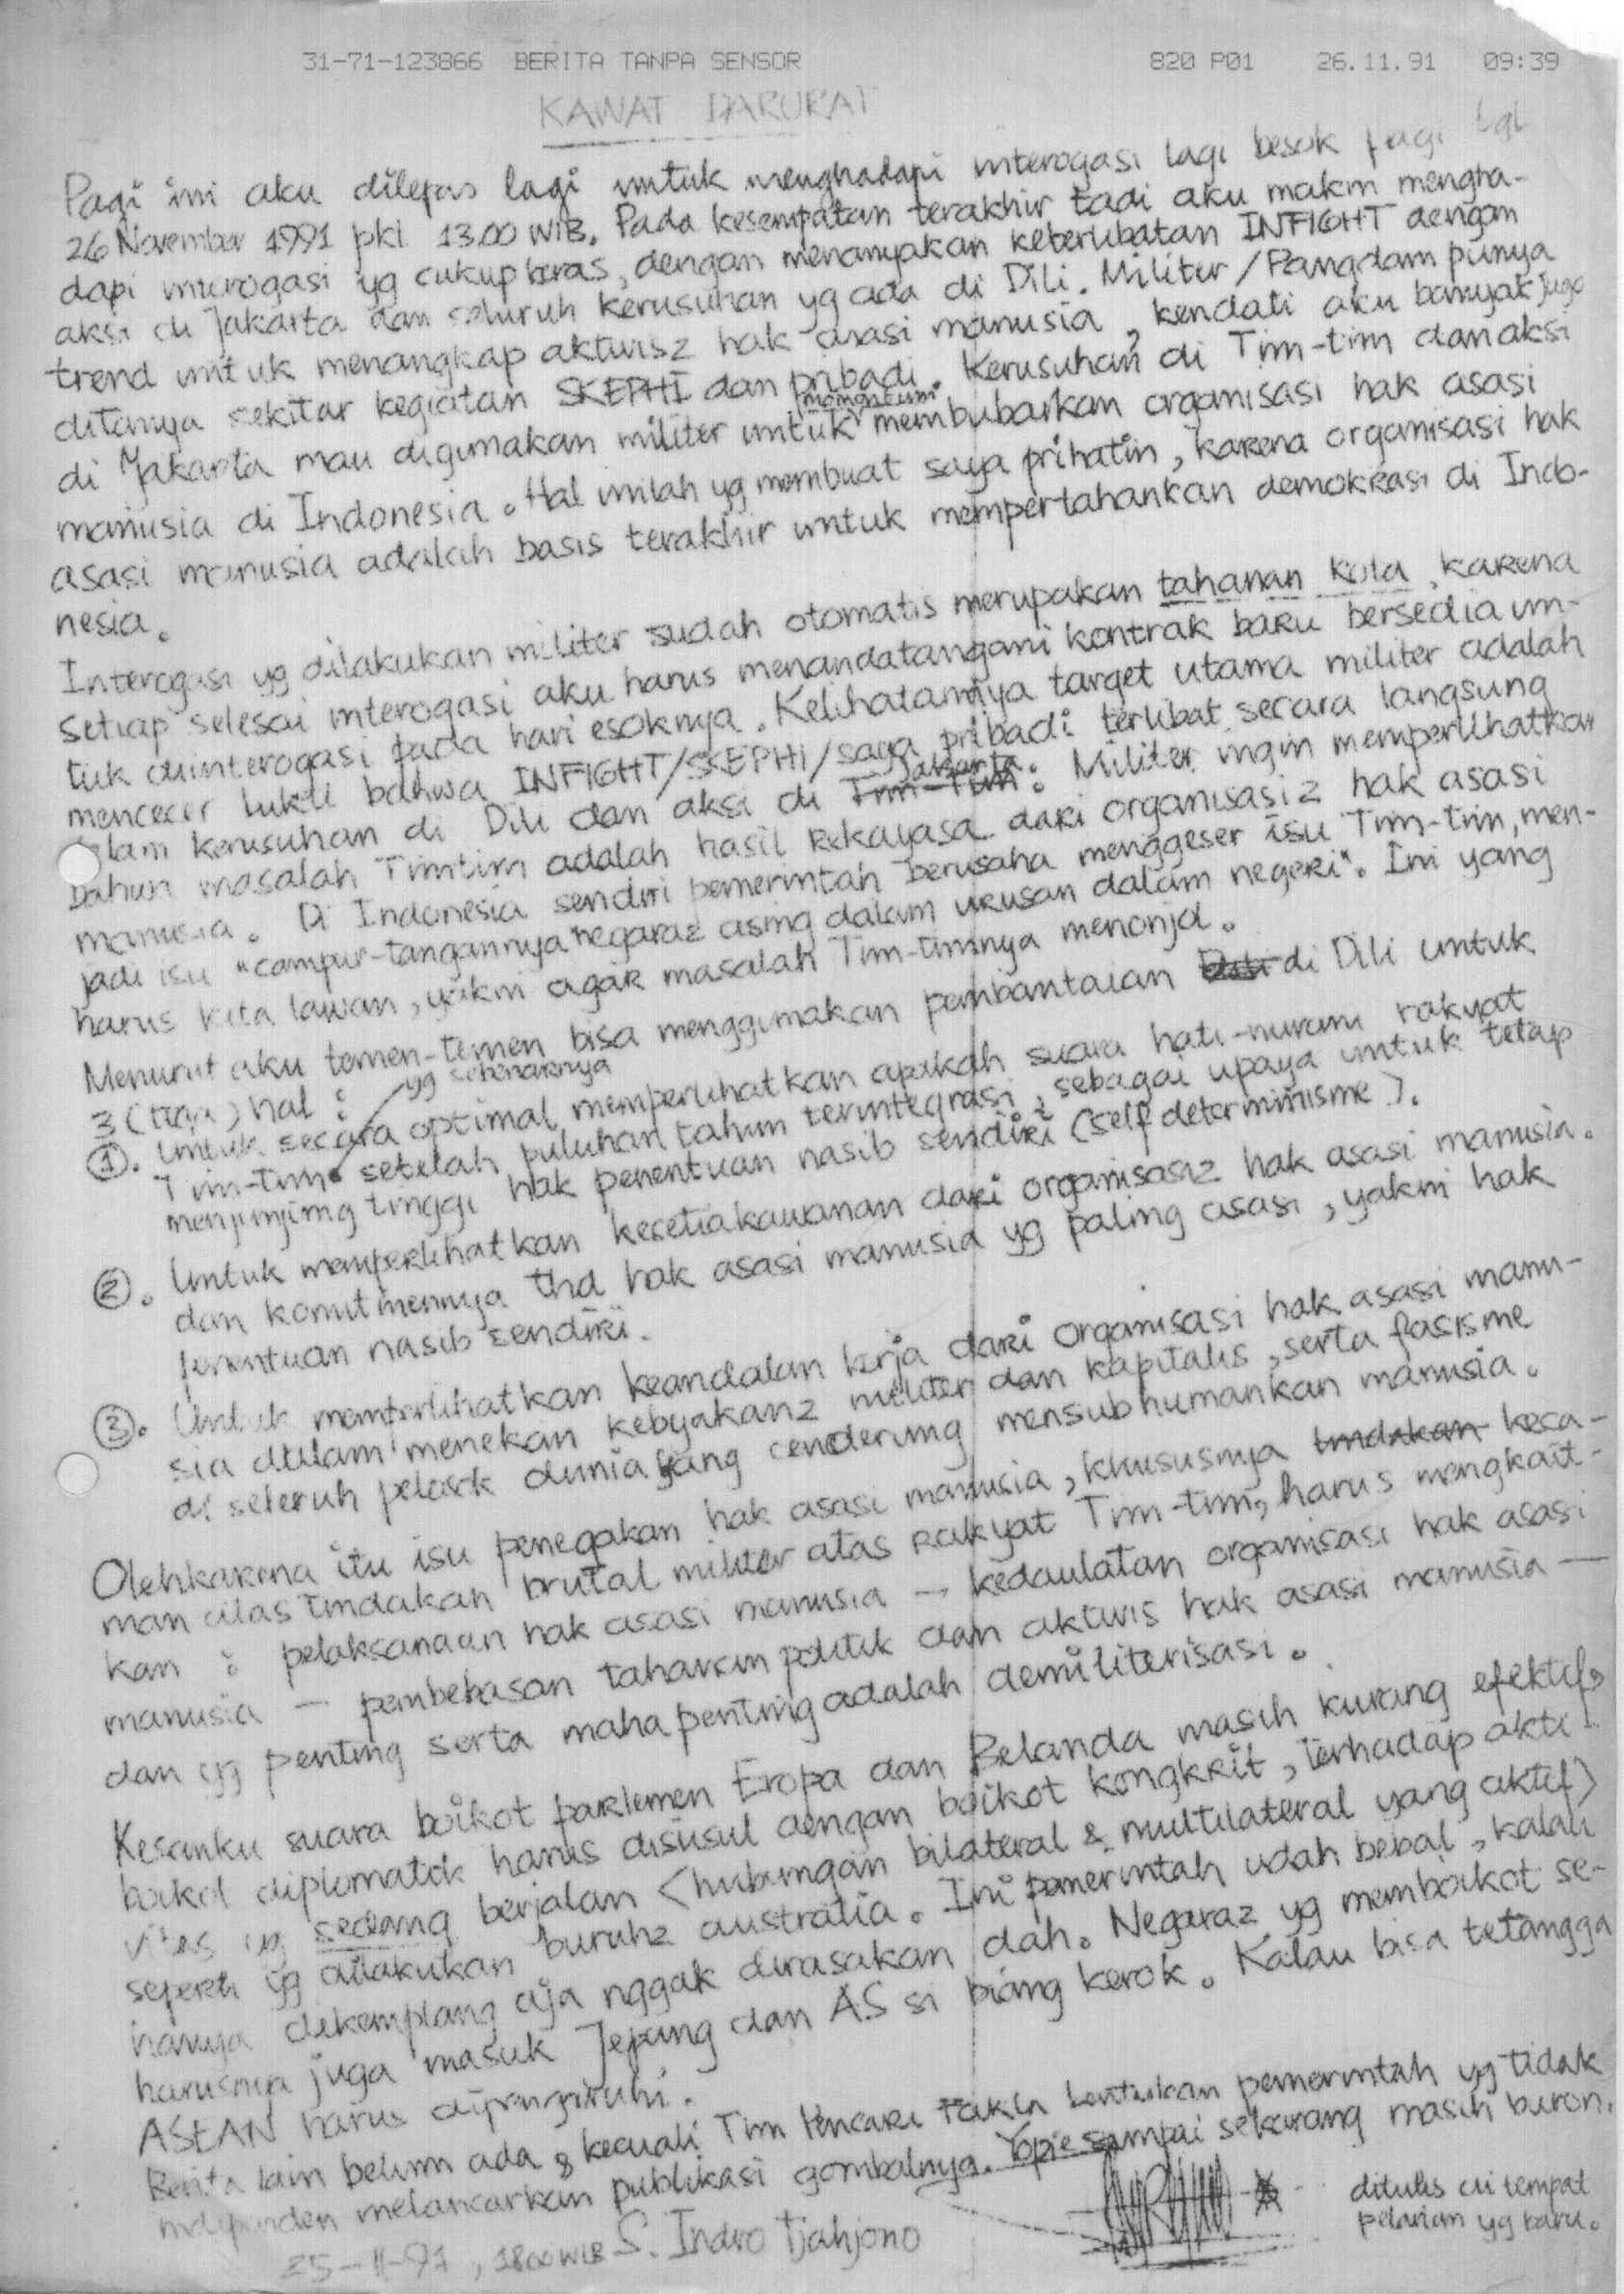 31-71-123866 BERITA TANPA SENSOR 820 P01 26.11.91 09:39
KAWAT DARURAT
Pagi ini aku dilepas lagi untuk menghadapi interogasi lagi besok pagi tgl
26 November 1991 pkl 13.00 WIB. Pada kesempatan terakhir tadi aku makin mengha-
dapi interogasi yg cukup keras, dengan menanyakan keterlibatan INFIGHT dengan
aksi di Jakarta dan seluruh kerusuhan yg ada di Dili. Militer/Pangdam punya
trend untuk menangkap aktivis2 hak asasi manusia, kendati aku banyak juga
ditanya sekitar kegiatan SKEPHI dan pribadi. Kerusuhan di Tim-tim dan aksi
di Jakarta mau digunakan militer untuk momentum membubarkan organisasi hak asasi
manusia di Indonesia. Hal inilah yg membuat saya prihatin, karena organisasi hak
asasi manusia adalah basis terakhir untuk mempertahankan demokrasi di Indo-
nesia.
Interogasi yg dilakukan militer sudah otomatis merupakan tahanan kota, karena
setiap selesai interogasi aku harus menandatangani kontrak baru bersedia un-
tuk diinterogasi pada hari esoknya. Kelihatannya target utama militer adalah
mencecer bukti bahwa INFIGHT/SKEPHI/saya pribadi terlibat secara langsung
dalam kerusuhan di Dili dan aksi di Tim-Tim Jakarta. Militer ingin memperlihatkan
bahwa masalah Timtim adalah hasil rekayasa dari organisasi2 hak asasi
manusia. Di Indonesia sendiri pemerintah berusaha menggeser isu Tim-tim, men-
jadi isu "campur-tangannya negara2 asing dalam urusan dalam negeri". Ini yang
harus kita lawan, yakni agar masalah Tim-timnya menonjol.
Menurut aku temen-temen bisa menggunakan pembantaian di Dili untuk
3 (tiga) hal:
yg sebenarnya
1. Untuk secara optimal memperlihatkan apakah suara hati-nurani rakyat
Tim-tim setelah puluhan tahun terintegrasi, sebagai upaya untuk tetap
menjunjung tinggi hak penentuan nasib sendiri (self determinisme).
2. Untuk memperlihatkan kesetiakawanan dari organisasi2 hak asasi manusia.
dan komitmennya thd hak asasi manusia yg paling asasi, yakni hak
penentuan nasib sendiri.
3. Untuk memperlihatkan keandalan kerja dari organisasi hak asasi manu-
sia dalam menekan kebijakan2 militer dan kapitalis, serta fasisme
di seluruh pelosok dunia yang cenderung mensubhumankan manusia.
Olehkarena itu isu penegakan hak asasi manusia, khususnya tindakan keca-
man atas tindakan brutal militer atas rakyat Tim-tim, harus mengkait-
kan : pelaksanaan hak asasi manusia — kedaulatan organisasi hak asasi
manusia — pembebasan tahanan politik dan aktivis hak asasi manusia —
dan yg penting serta maha penting adalah demiliterisasi.
Kesanku suara boikot parlemen Eropa dan Belanda masih kurang efektif,
boikot diplomatik harus disusul dengan boikot kongkrit, terhadap akti-
vitas yg sedang berjalan <hubungan bilateral & multilateral yang aktif>
seperti yg dilakukan buruh2 australia. Ini pemerintah udah bebal, kalau
hanya dikemplang aja nggak dirasakan dah. Negara2 yg memboikot se-
harusnya juga masuk Jepang dan AS si biang kerok. Kalau bisa tetangga
ASEAN harus dipengaruhi.
Berita lain belum ada, kecuali Tim Pencari Fakta bentukan pemerintah yg tidak
independen melancarkan publikasi gombalnya. Yopie sampai sekarang masih buron.
ditulis di tempat
pelarian yg baru.
25-11-91, 18.00 WIB S. Indro Tjahjono